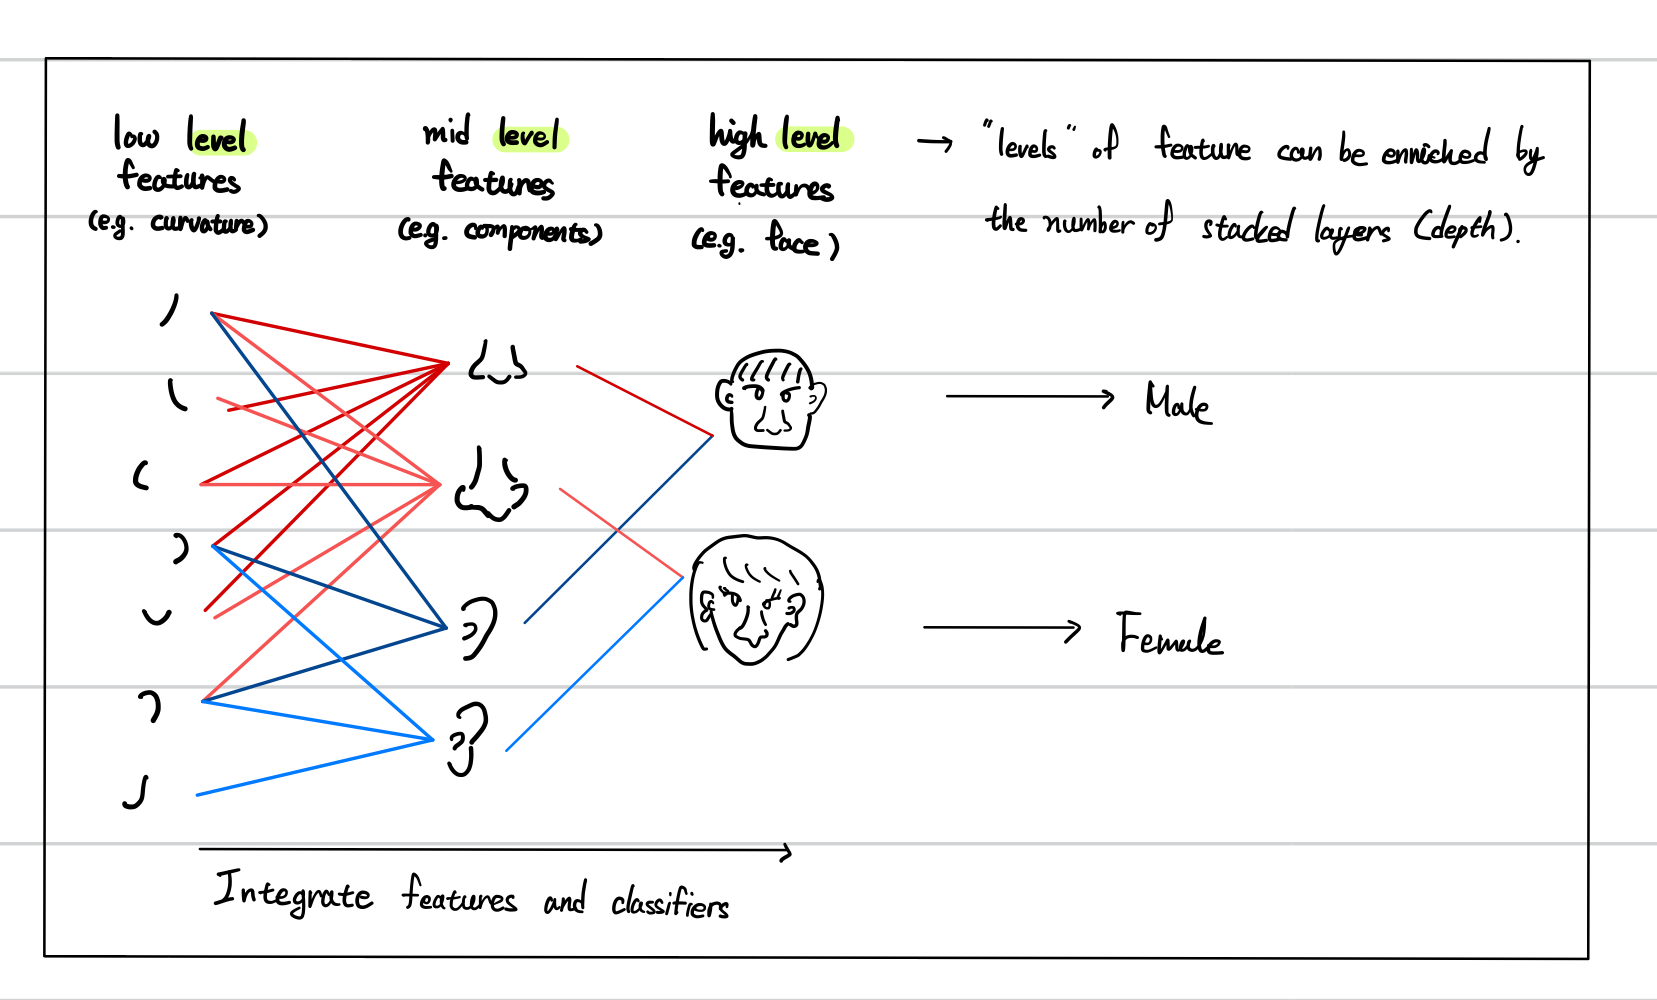 low level
features
(e.g. curvature)
mid level
features
(e.g. components)
high level
features
(e.g. face)
→ "levels" of feature can be enriched by
the number of stacked layers (depth).
Male
Female
Integrate features and classifiers